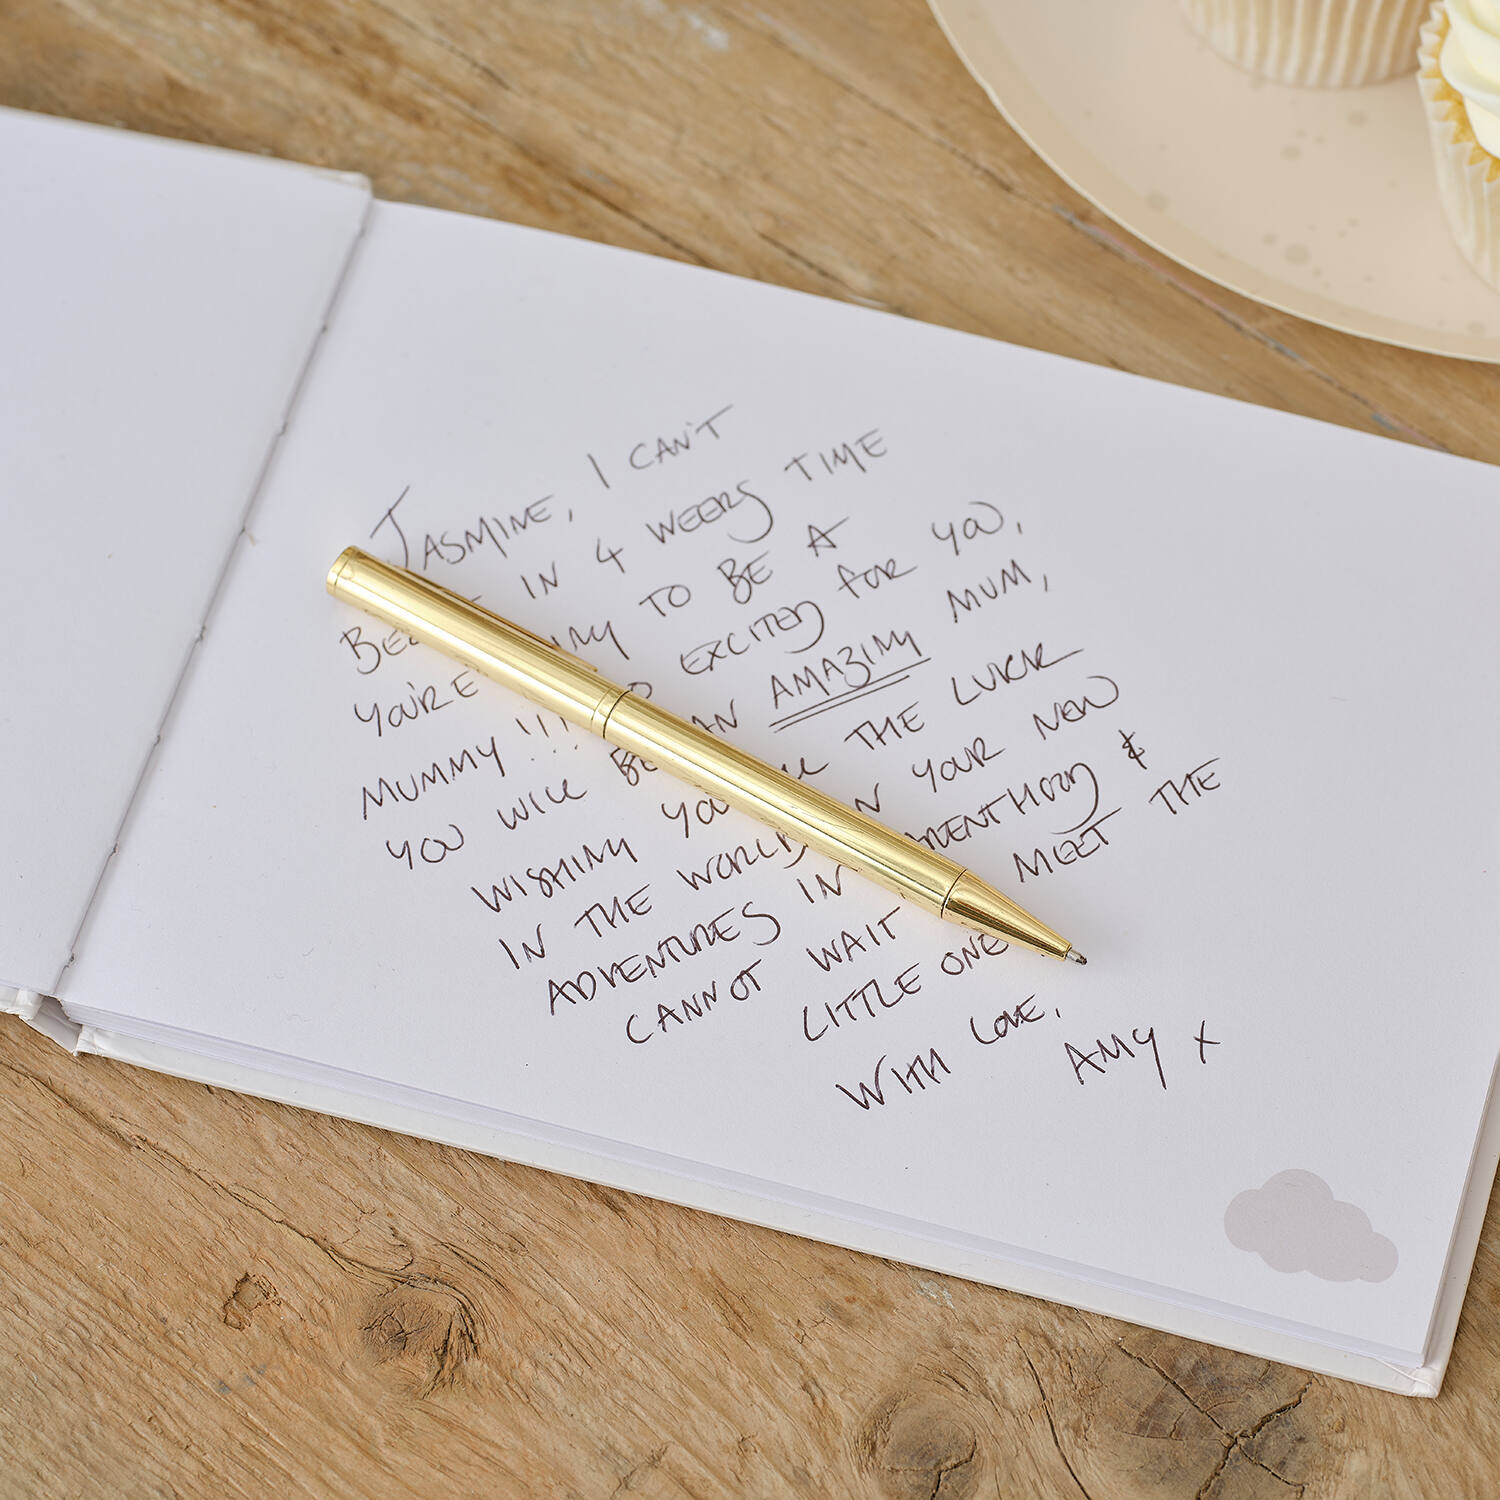 JASMINE, I CAN'T
IN 4 WEEKS TIME
YOU'RE TO BE A
MUMMY!!! EXCITED FOR YOU,
YOU WILL BE AN AMAZING MUM,
WISHING YOU THE LUCK
IN THE WORLD YOUR NEW
ADVENTURES IN &
CANNOT WAIT MEET THE
LITTLE ONE
WITH LOVE,
AMY X